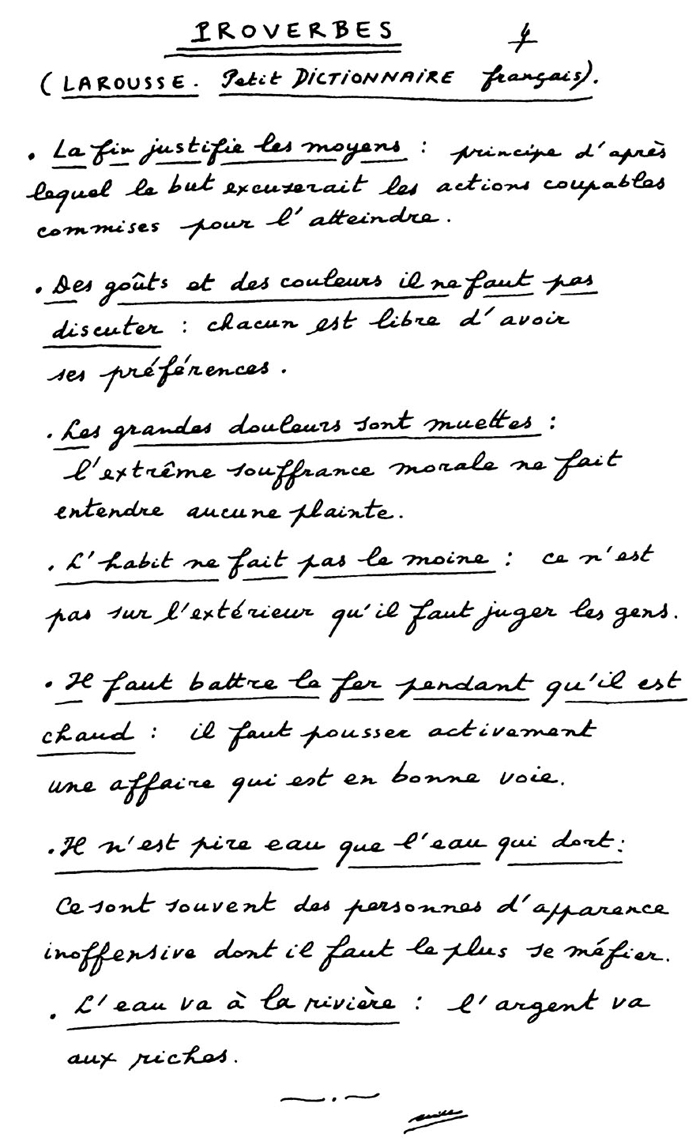 PROVERBES 4
(LAROUSSE. Petit DICTIONNAIRE français).
• La fin justifie les moyens : principe d'après
lequel le but excuserait les actions coupables
commises pour l'atteindre.
• Des goûts et des couleurs il ne faut pas
discuter : chacun est libre d'avoir
ses préférences.
• Les grandes douleurs sont muettes :
l'extrême souffrance morale ne fait
entendre aucune plainte.
• L'habit ne fait pas le moine : ce n'est
pas sur l'extérieur qu'il faut juger les gens.
• Il faut battre le fer pendant qu'il est
chaud : il faut pousser activement
une affaire qui est en bonne voie.
• Il n'est pire eau que l'eau qui dort :
Ce sont souvent des personnes d'apparence
inoffensive dont il faut le plus se méfier.
• L'eau va à la rivière : l'argent va
aux riches.
suite